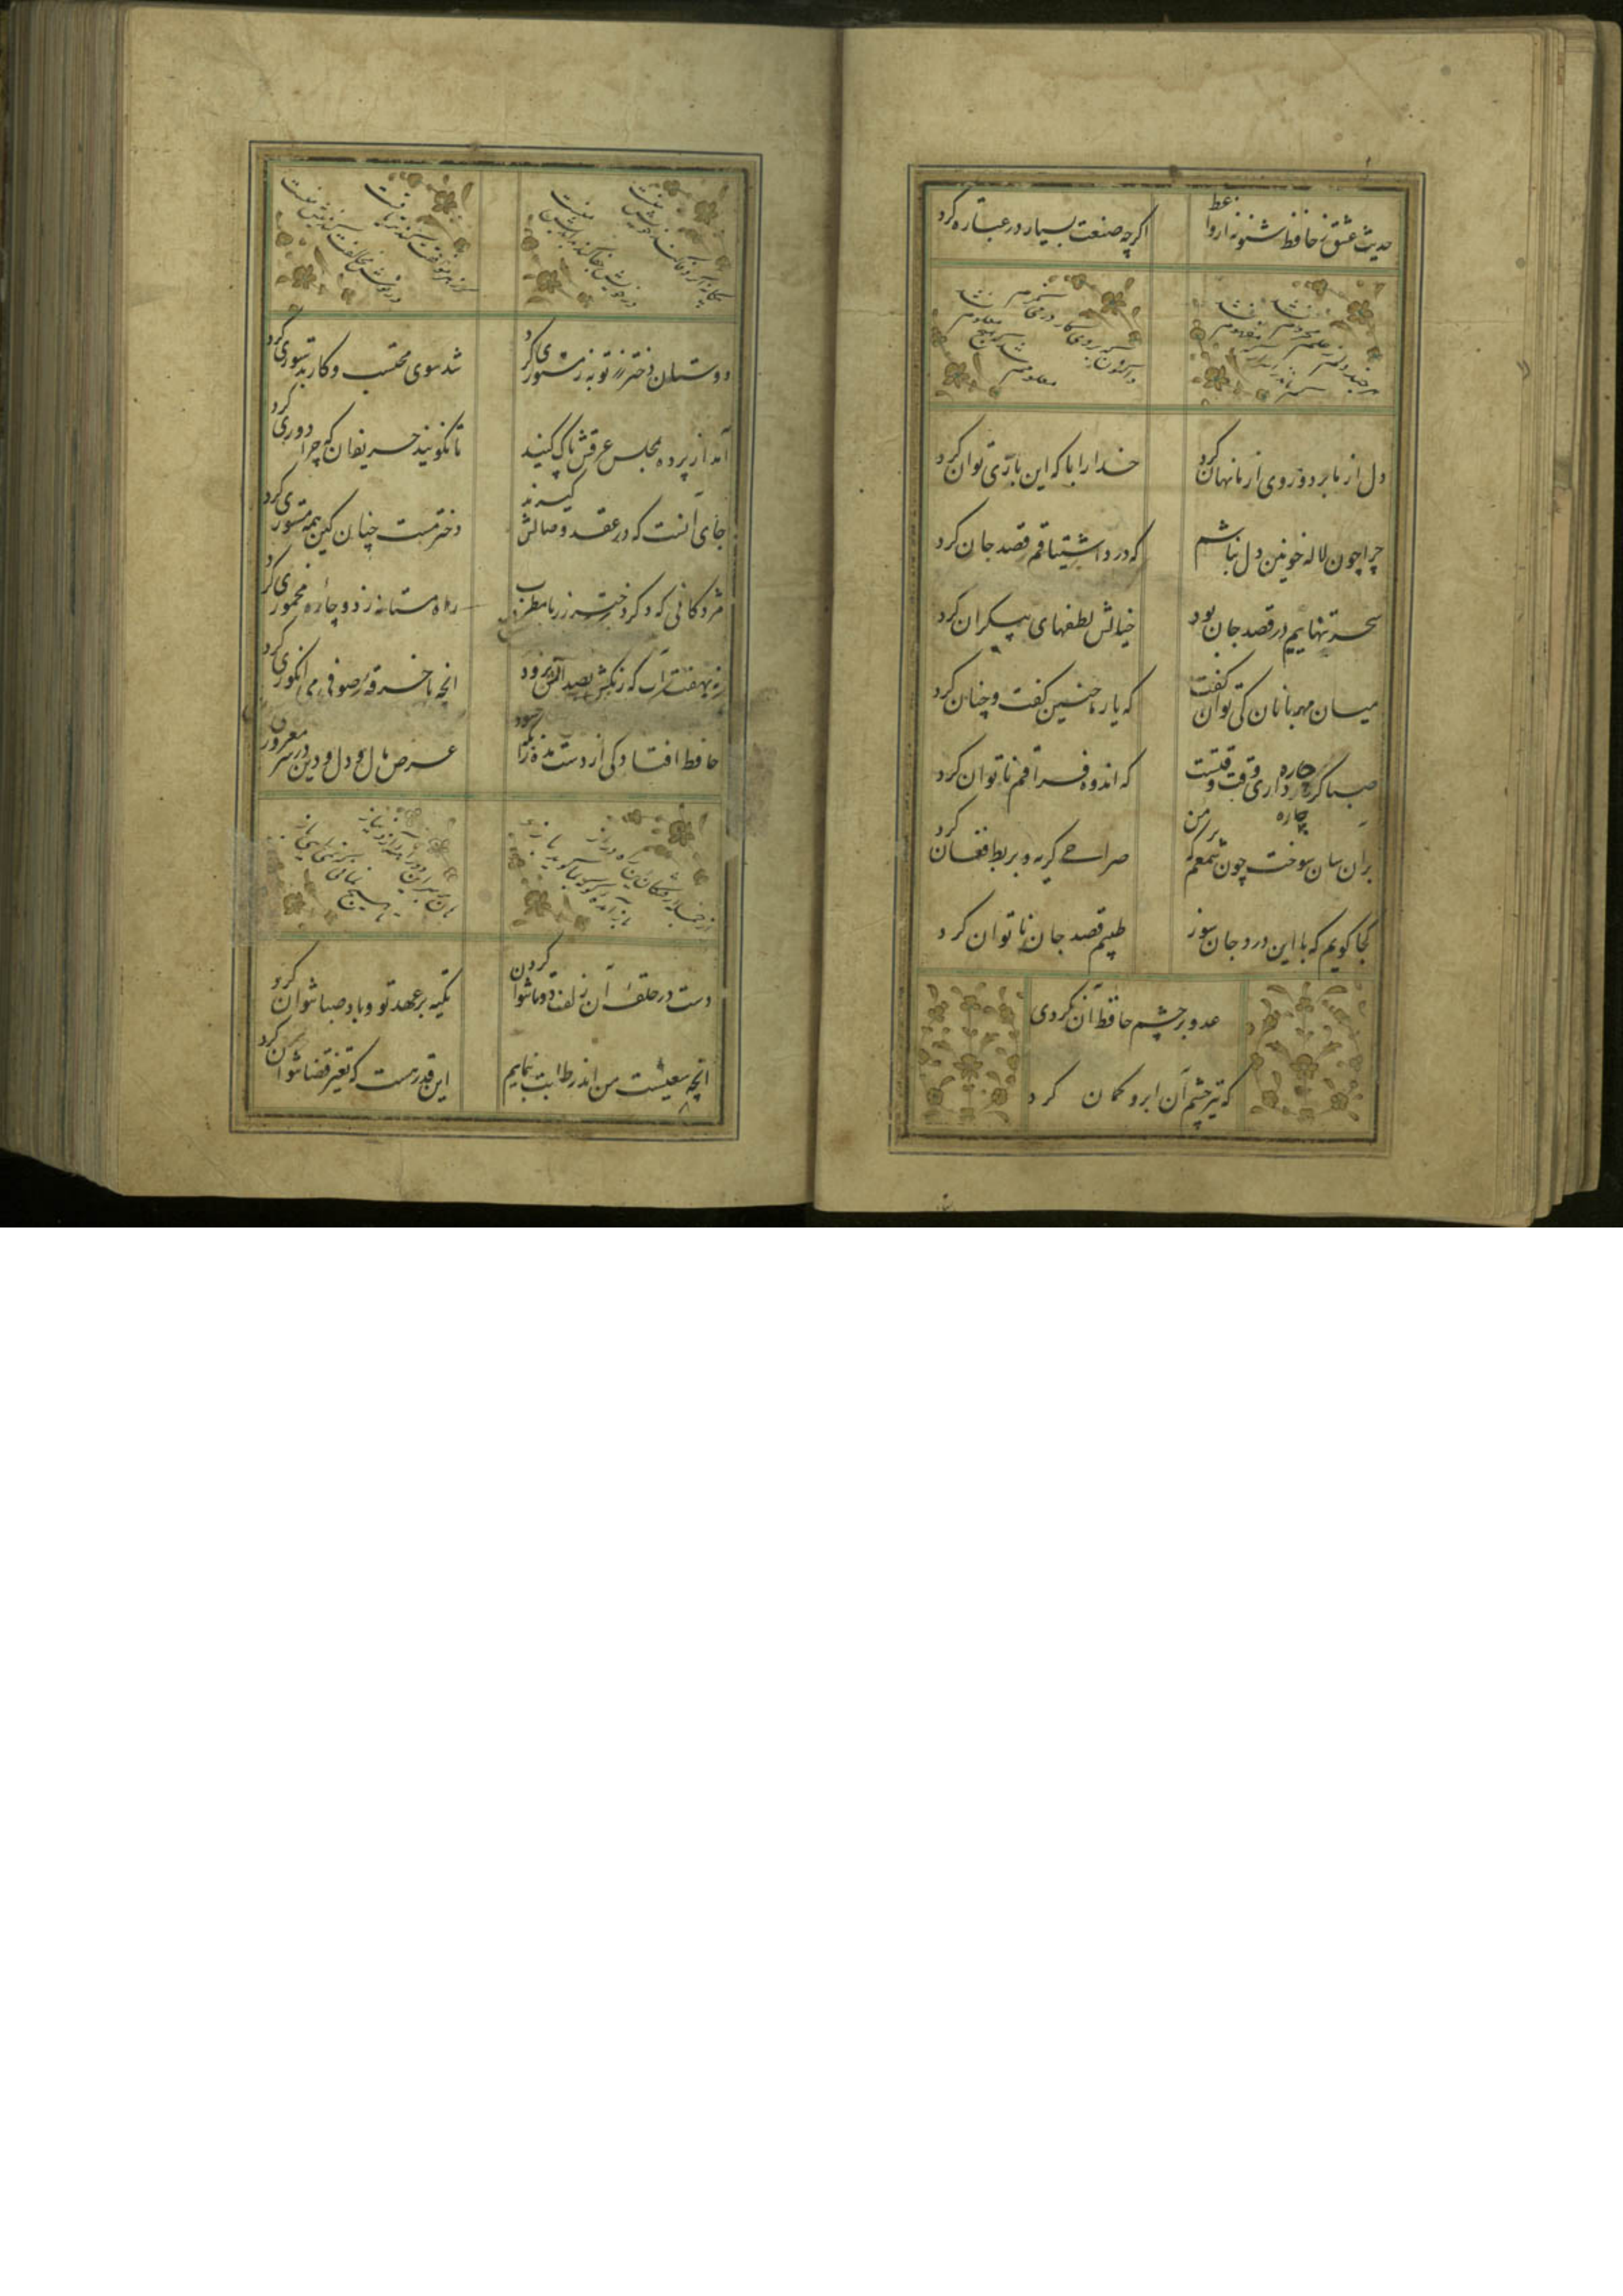 حدیث عشق ز حافظ شنو نه از واعظ
اگرچه صنعت بسیار در عبارت کرد
هرچند دلم ز عشق محروم نشد
کم ماند ز اسرار که مفهوم نشد
واکنون که بروی کار در می‌نگرم
معلومم شد که هیچ معلوم نشد
دل از ما برد و روی از ما نهان کرد
خدا را با که این بازی توان کرد
چرا چون لاله خونین دل نباشم
که درد اشتیاقم قصد جان کرد
سحر تنهاییم در قصد جان بود
خیالش لطفهای بیکران کرد
میان مهربانان کی توان گفت
که یار ما چنین گفت و چنان کرد
صبا گر چاره داری وقت وقتست
چاره
که اندوه فراقم ناتوان کرد
بران سان سوخت چون شمعم که بر من
صراحی گریه و بربط فغان کرد
کجا گویم که با این درد جان سوز
طبیبم قصد جان ناتوان کرد
عدو بر چشم حافظ آن نکردی
که تیر چشم آن ابرو کمان کرد
بیگانه اگر وفا کند خویش منست
ور خویش جفا کند بداندیش منست
گر زهر موافقت کند تریاقست
ور نوش مخالفت کند نیش منست
دوستان دختر رز توبه ز مستوری کرد
شد سوی محتسب و کار بدستوری کرد
آمد از پرده بمجلس عرقش پاک کنید
تا نگویند حریفان که چرا دوری کرد
جای آنست که در عقد وصالش گیرند
دختر مست چنان کین همه مستوری کرد
مژدگانی که دگر دختر رز با مطرب
راه مستانه زد و چاره مخموری کرد
نه بهفت آب که رنگش بصد آتش نرود
انچه با خرقه صوفی می انگوری کرد
حافظ افتادگی از دست مده زانکه حسود
عرض مال و دل و دین در سر مغروری کرد
باز آمده
هیچ
دست در حلقه آن زلف دوتا نتوان کردن
تکیه بر عهد تو و باد صبا نتوان کرد
انچه سعیست من اندر طلبت بنمایم
این قدر هست که تغیر قضا نتوان کرد